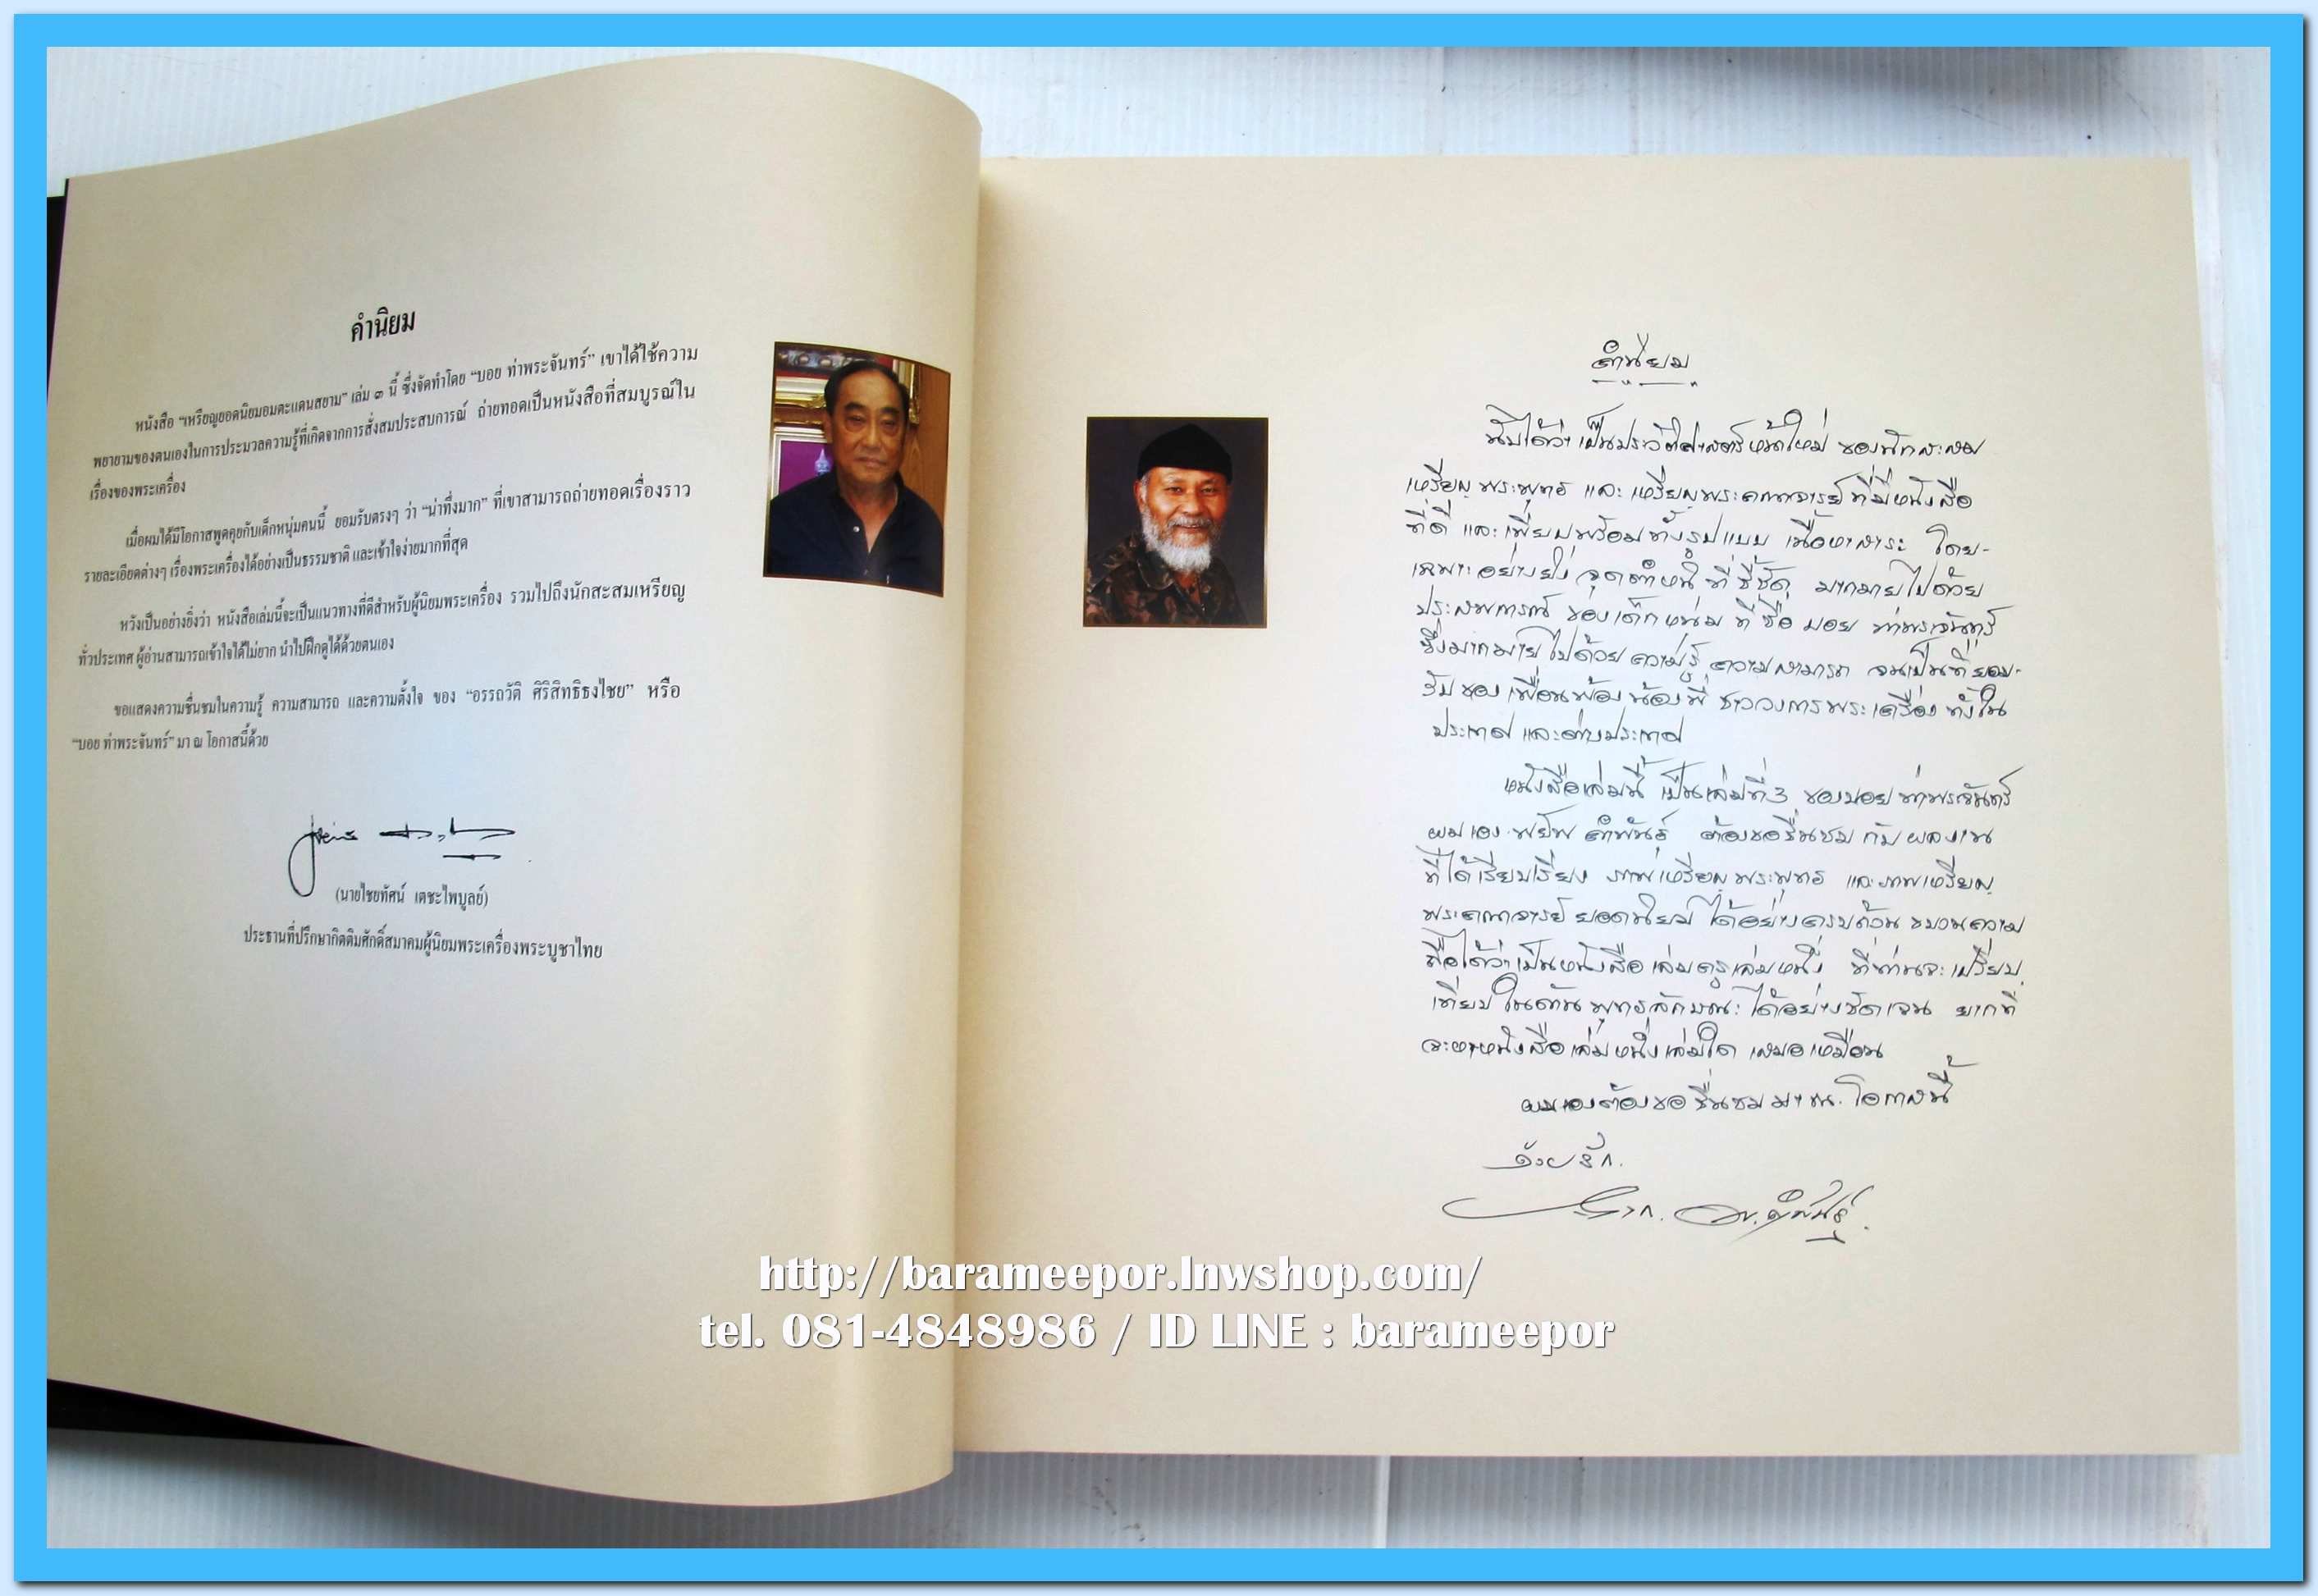 คำนิยม
หนังสือ “เหรียญยอดนิยมอมตะแดนสยาม” เล่ม ๓ นี้ ซึ่งจัดทำโดย “บอย ท่าพระจันทร์” เขาได้ใช้ความ
พยายามของตนเองในการประมวลความรู้ที่เกิดจากการสั่งสมประสบการณ์ ถ่ายทอดเป็นหนังสือที่สมบูรณ์ใน
เรื่องของพระเครื่อง
เมื่อผมได้มีโอกาสพูดคุยกับเด็กหนุ่มคนนี้ ยอมรับตรงๆ ว่า “น่าทึ่งมาก” ที่เขาสามารถถ่ายทอดเรื่องราว
รายละเอียดต่างๆ เรื่องพระเครื่องได้อย่างเป็นธรรมชาติ และเข้าใจง่ายมากที่สุด
หวังเป็นอย่างยิ่งว่า หนังสือเล่มนี้จะเป็นแนวทางที่ดีสำหรับผู้นิยมพระเครื่อง รวมไปถึงนักสะสมเหรียญ
ทั่วประเทศ ผู้อ่านสามารถเข้าใจได้ไม่ยาก นำไปฝึกดูได้ด้วยตนเอง
ขอแสดงความชื่นชมในความรู้ ความสามารถ และความตั้งใจ ของ “อรรถวัติ ศิริสิทธิธงไชย” หรือ
“บอย ท่าพระจันทร์” มา ณ โอกาสนี้ด้วย
(นายไชยทัศน์ เตชะไพบูลย์)
ประธานที่ปรึกษากิตติมศักดิ์สมาคมผู้นิยมพระเครื่องพระบูชาไทย
คำนิยม
นับได้ว่า เป็นประวัติศาสตร์หน้าใหม่ ของนักสะสม
เหรียญพระพุทธ และ เหรียญพระคณาจารย์ ที่มีหนังสือ
ที่ดี และเพียบพร้อมทั้งรูปแบบ เนื้อหาสาระ โดย-
เฉพาะอย่างยิ่ง จุดตำหนิ ที่ชี้ชัด มากมายไปด้วย
ประสบการณ์ ของเด็กหนุ่ม ที่ชื่อ บอย ท่าพระจันทร์
ซึ่งมากมายไปด้วยความรู้ ความสามารถ จนเป็นที่ยอม-
รับของเพื่อนพ้องน้องพี่ ชาววงการพระเครื่อง ทั้งใน
ประเทศ และต่างประเทศ
หนังสือเล่มนี้ เป็นเล่มที่ 3 ของบอย ท่าพระจันทร์
ผมเอง พยัพ คำพันธุ์ ต้องขอชื่นชม กับผลงาน
ที่ได้เรียบเรียง ภาพเหรียญพระพุทธ และภาพเหรียญ
พระคณาจารย์ ยอดนิยม ได้อย่างครบถ้วน ขบวนความ
ถือได้ว่าเป็นหนังสือเล่มครูเล่มหนึ่ง ที่ท่านจะเปรียบ
เทียบในด้านพุทธลักษณะได้อย่างชัดเจน ยากที่
จะหาหนังสือเล่มหนึ่งเล่มใด เสมอเหมือน
ผมเองต้องขอชื่นชมมา ณ. โอกาสนี้
ด้วยรัก.
http://barameepor.lnwshop.com/
tel. 081-4848986 / ID LINE : barameepor